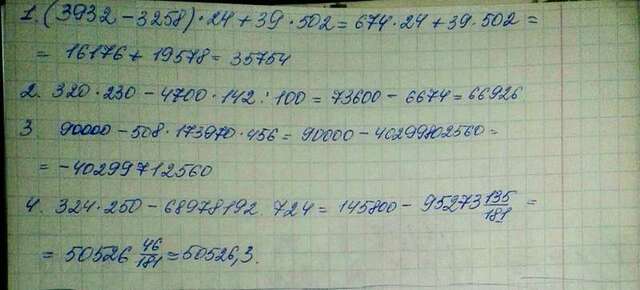 1. (3932 - 3258) · 24 + 39 · 502 = 674 · 24 + 39 · 502 =
= 16176 + 19578 = 35754
2. 320 · 230 - 4700 · 142 : 100 = 73600 - 6674 = 66926
3 90000 - 508 · 173970 · 456 = 90000 - 40299802560 =
= -40299712560
4. 324 · 250 - 68978192 724 = 145800 - 95273 135/181 =
= 50526 46/181 = 50526,3.